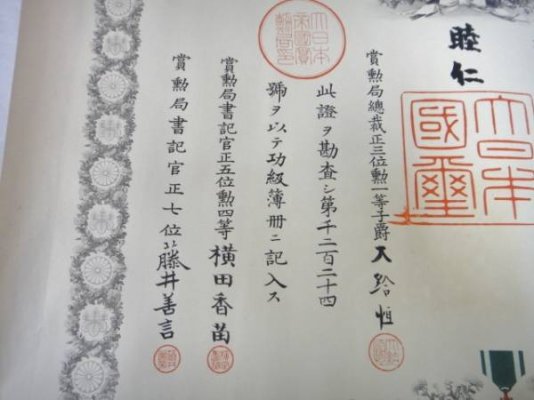 睦仁
大日本國璽
賞勲局總裁正三位勲一等子爵大給恒
此證ヲ勘査シ第千二百二十四
號ヲ以テ功級簿册ニ記入ス
大日本帝國賞勲局印
賞勲局書記官正五位勲四等横田香苗
賞勲局書記官正七位藤井善言